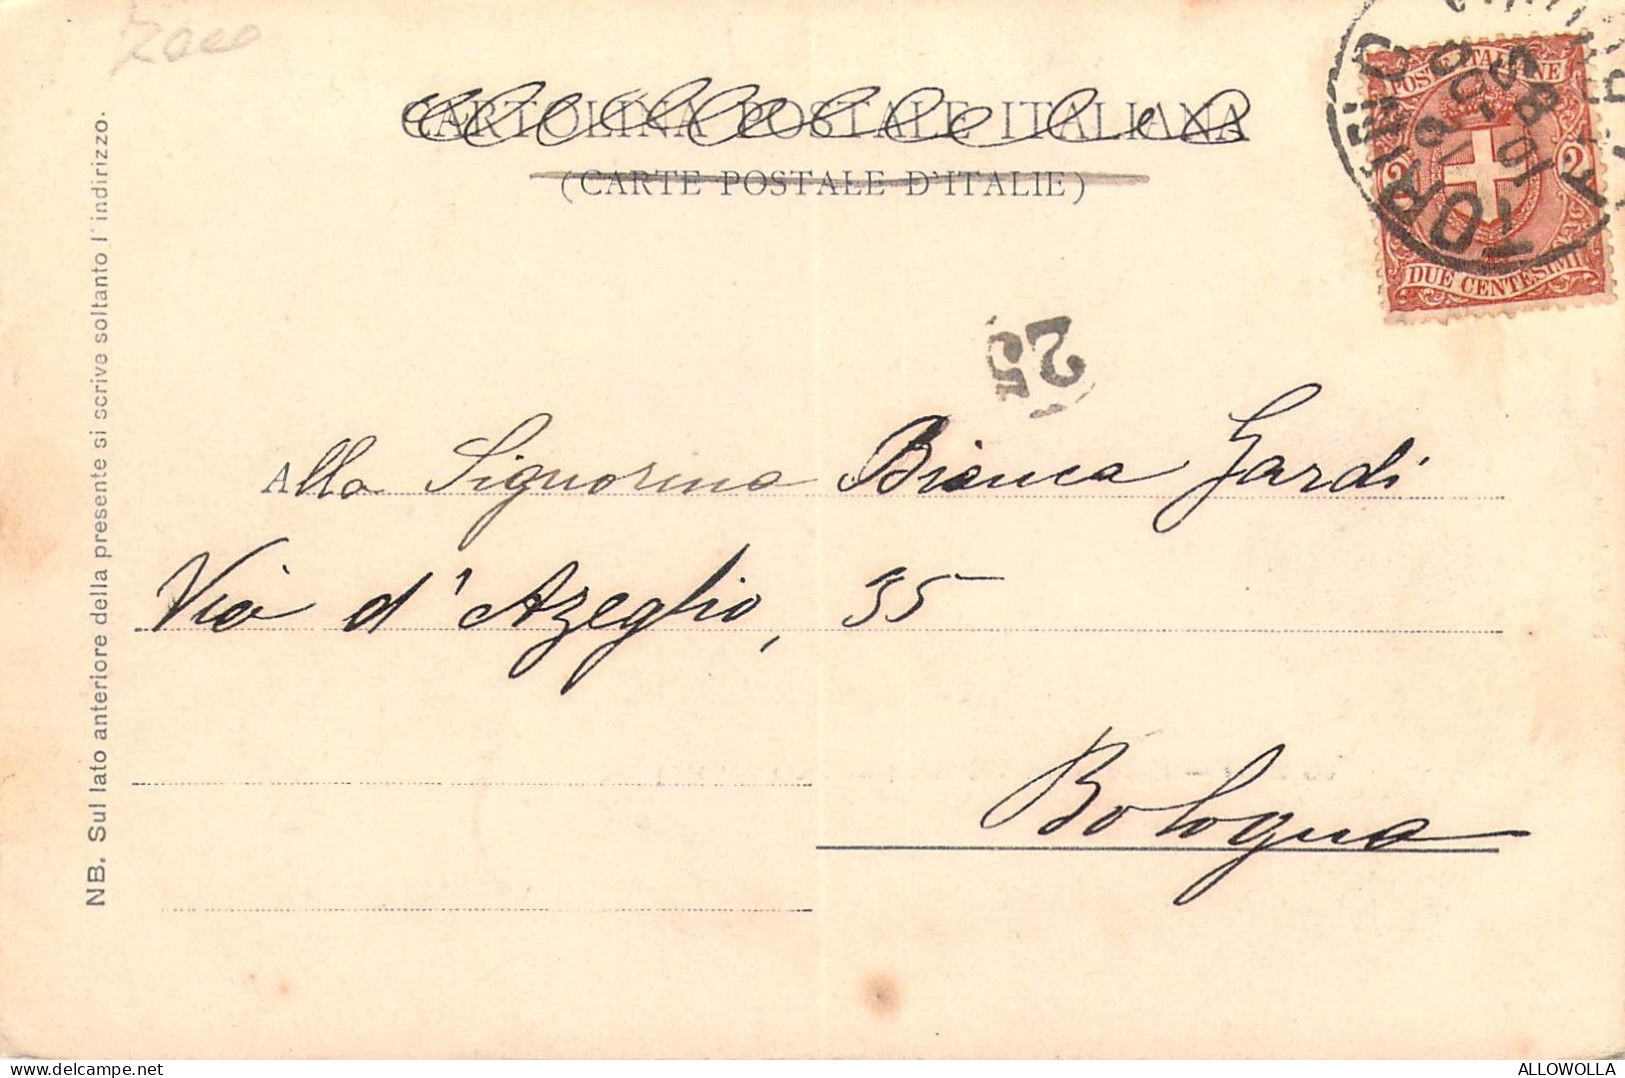 2000
CARTOLINA POSTALE ITALIANA
(CARTE POSTALE D'ITALIE)
POSTE ITALIANE
2 2
DUE CENTESIMI
TORINO
25
Alla Signorina Bianca Gardi
Via d'Azeglio, 35
Bologna
NB. Sul lato anteriore della presente si scrive soltanto l'indirizzo.
ALLOWOLLA